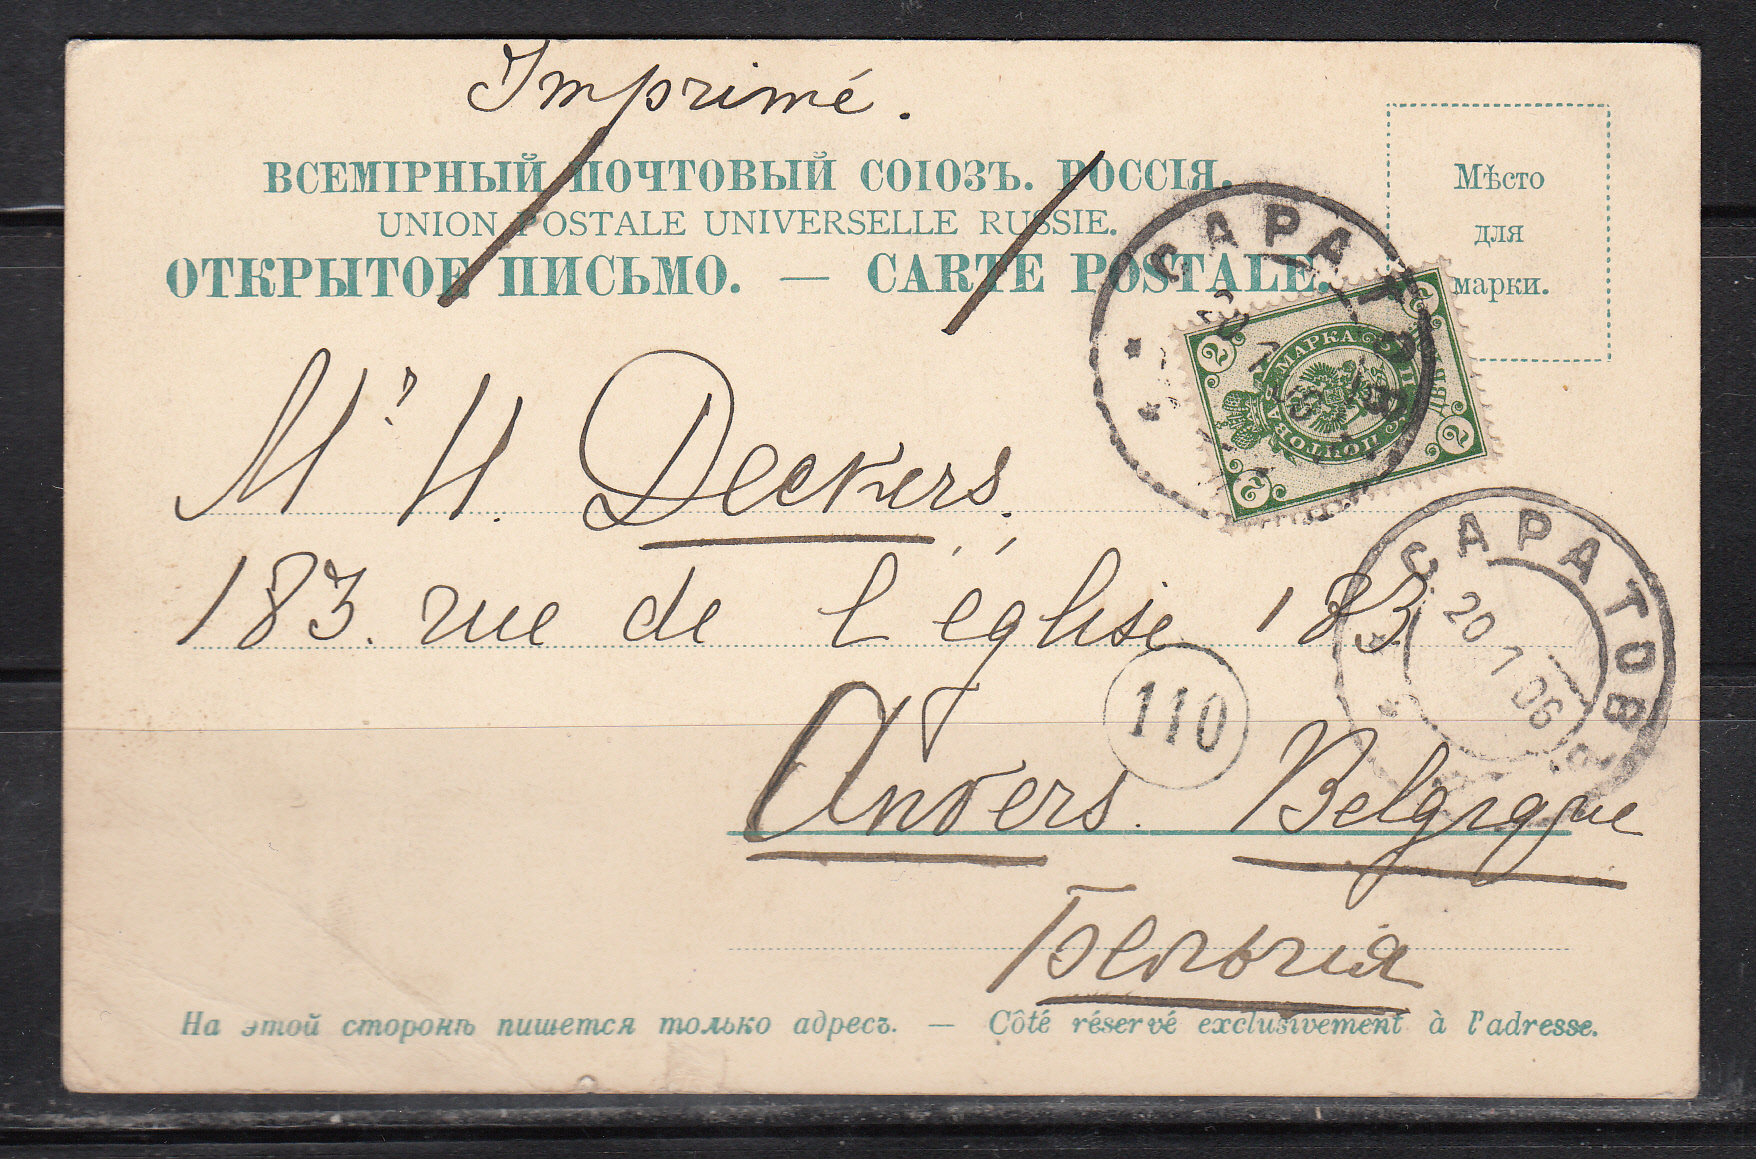 Imprimé.
ВСЕМІРНЫЙ ПОЧТОВЫЙ СОЮЗЪ. РОССІЯ.
UNION POSTALE UNIVERSELLE RUSSIE.
ОТКРЫТОЕ ПИСЬМО. — CARTE POSTALE.
Мѣсто
для
марки.
САРАТОВ
20 1 06
2 2 2 2
ПОЧТОВАЯ МАРКА
Mr H. Deckers.
183. rue de l'église 183.
САРАТОВЪ
20 1 06
110
Anvers. Belgique
Бельгия
На этой сторонѣ пишется только адресъ. — Côté réservé exclusivement à l'adresse.